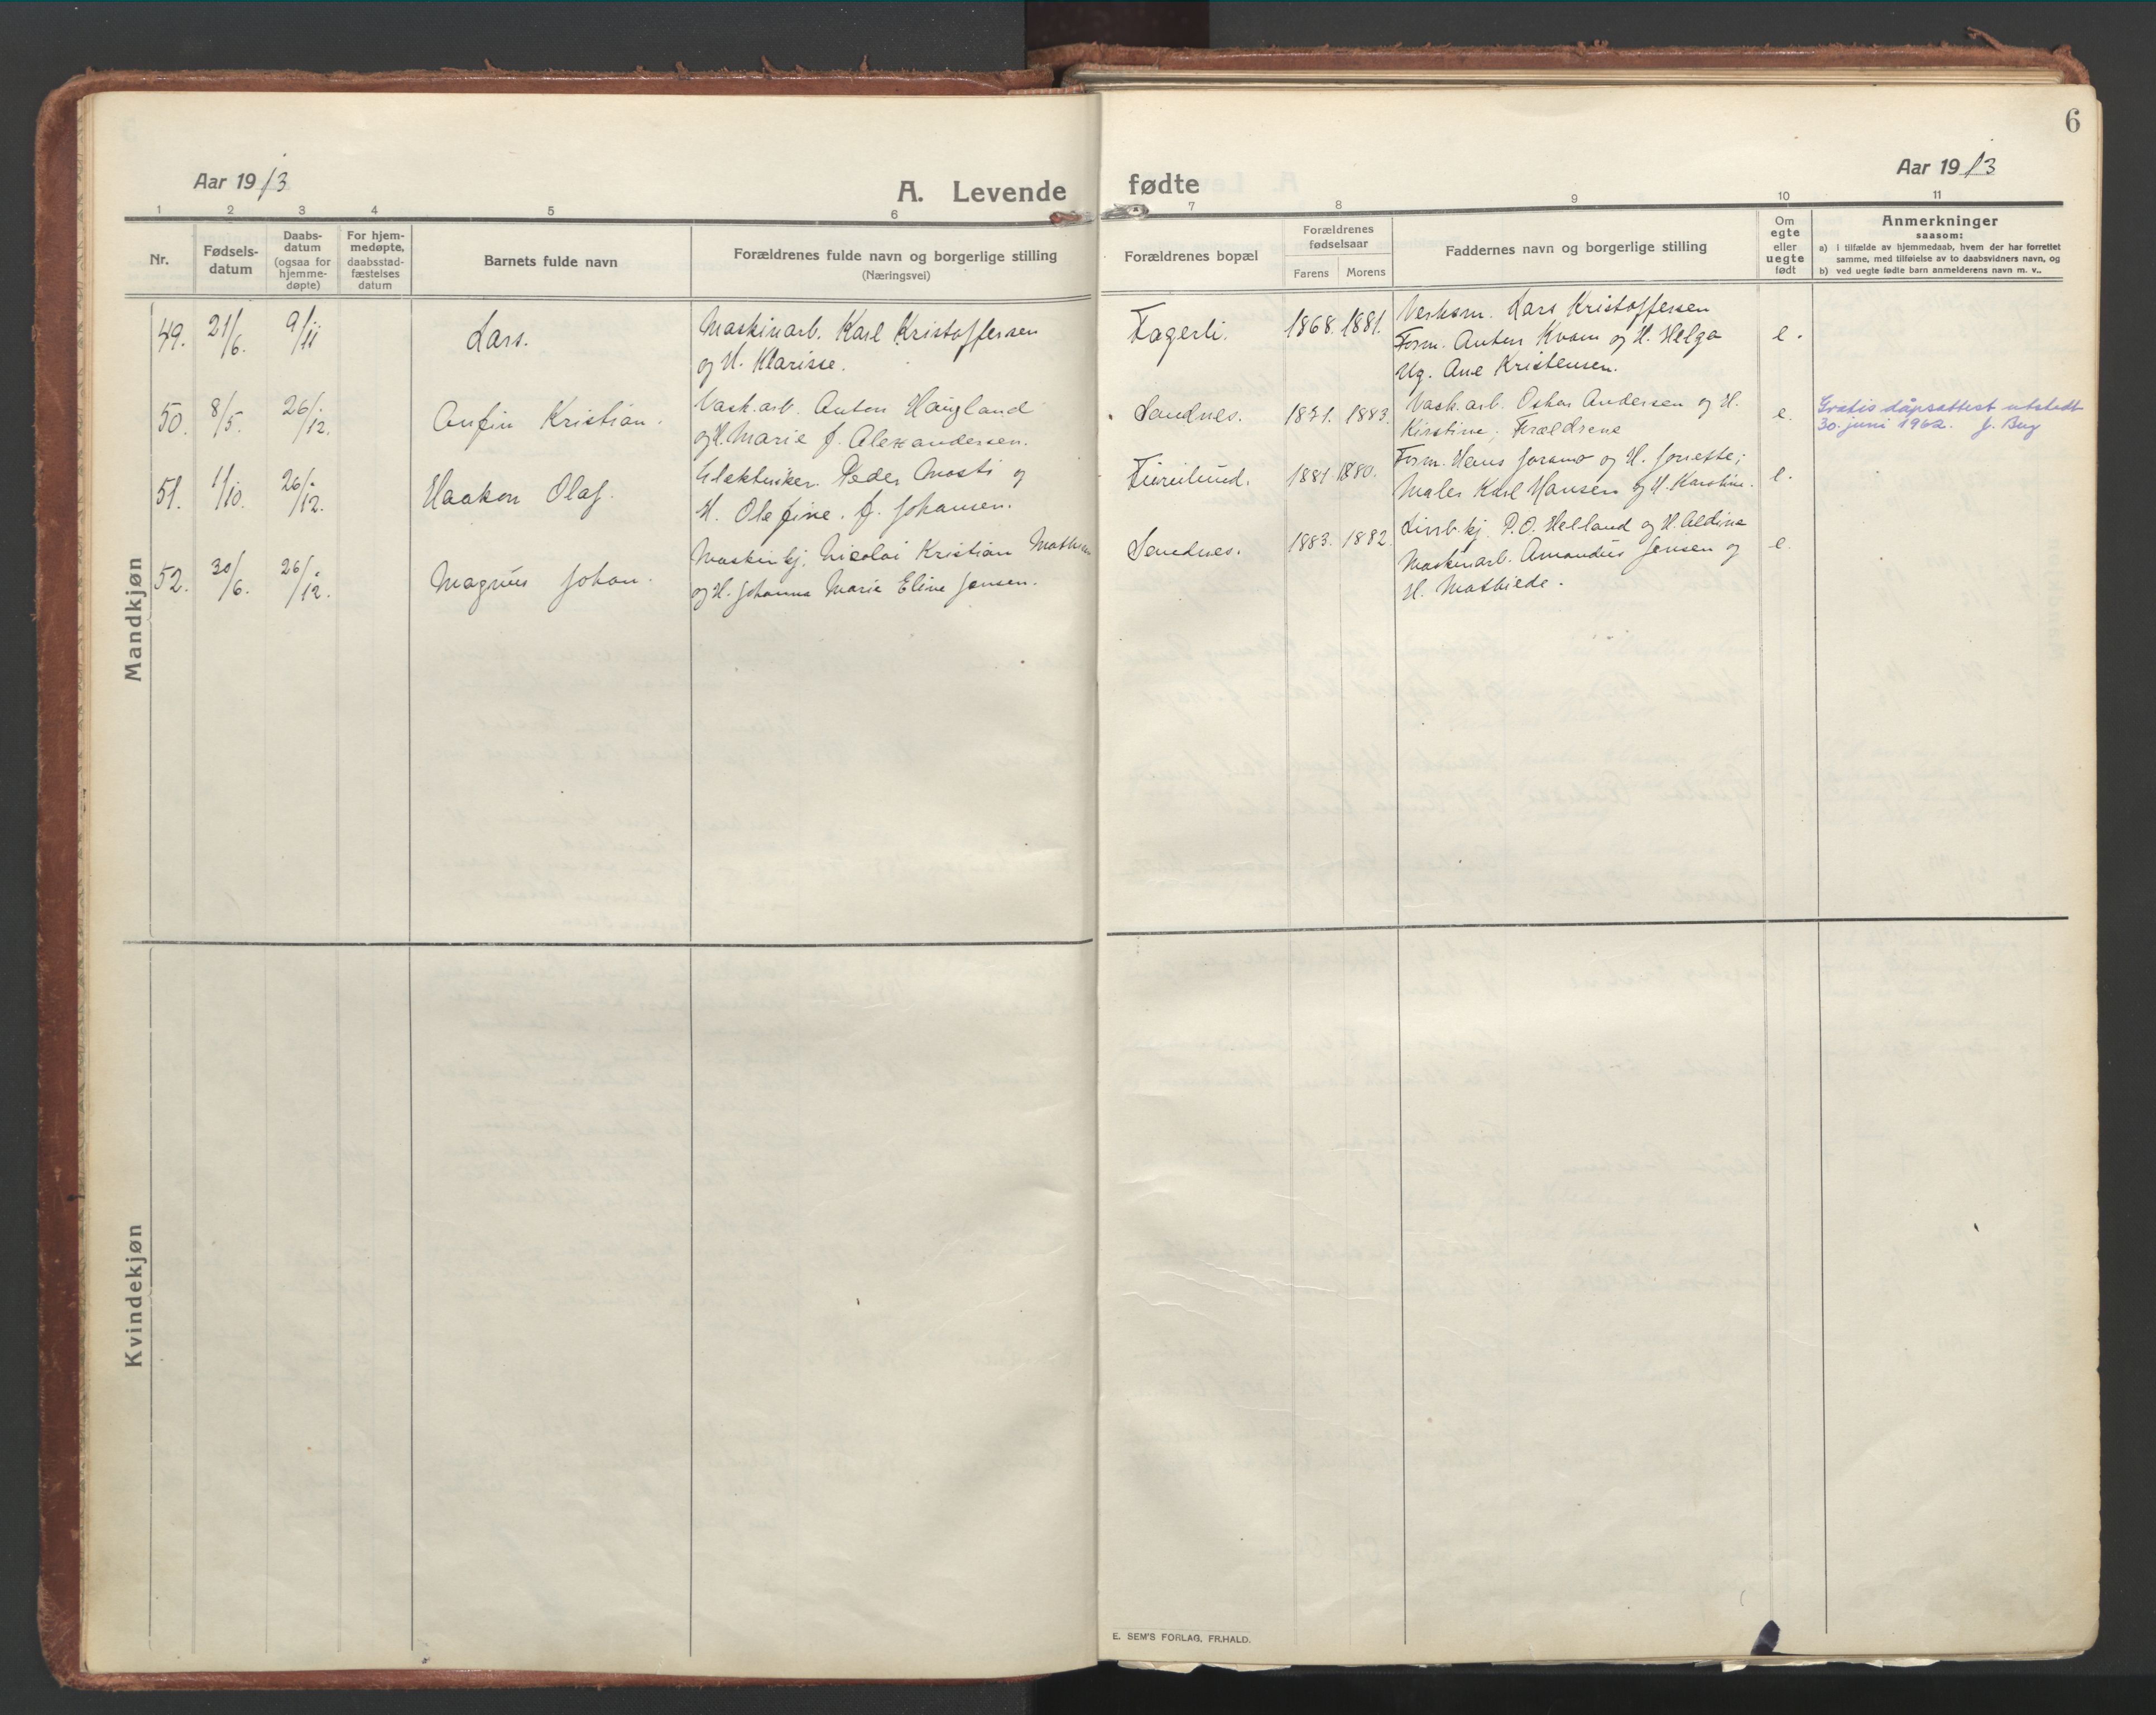 6
Aar 1913
A. Levende fødte
Aar 1913
1 2 3 4 5 6 7 8 9 10 11
Nr.
Fødsels-
datum
Daabs-
datum
(ogsaa for
hjemme-
døpte)
For hjem-
medøpte,
daabsstad-
fæstelses
datum
Barnets fulde navn
Forældrenes fulde navn og borgerlige stilling
(Næringsvei)
Forældrenes bopæl
Forældrenes
fødselsaar
Farens Morens
Faddernes navn og borgerlige stilling
Om
egte
eller
uegte
født
Anmerkninger
saasom:
a) i tilfælde av hjemmedaab, hvem der har forrettet
samme, med tilføielse av to daabsvidners navn, og
b) ved uegte fødte barn anmelderens navn m. v..
Mandkjøn
49. 21/6. 9/11 Lars.
Maskinarb. Karl Kristoffersen
og H. Klarisse.
Fagerli. 1868. 1881.
Verksm. Lars Kristoffersen
Form. Anton Kvam og H. Helga
Ug. Ane Kristensen.
e.
50. 8/5. 26/12. Anfin Kristian.
Vask.arb. Anton Haugland
og H. Marie f. Alexandersen.
Sandnes. 1871. 1883.
Vask.arb. Oskar Andersen og H.
Kirstine; Forældrene
e.
Gratis dåpsattest utstedt
30. juni 1962. J. Berg
51. 1/10. 26/12. Haakon Olaf.
Elektriker Peder Mosti og
H. Olefine f. Johansen.
Furulund. 1881. 1880.
Form. Hans Joramo og H. Jorette;
Maler Karl Hansen og H. Karoline.
e.
52. 30/6. 26/12. Magnus Johan.
Maskinkj. Nicolai Kristian Mathisen
og H. Johanna Marie Eline Jensen.
Sandnes. 1883. 1882.
P.O. Helland og H. Aldine
Maskinarb. Amandus Jensen og
H. Mathilde.
e.
Kvindekjøn
E. SEM'S FORLAG, FR.HALD.